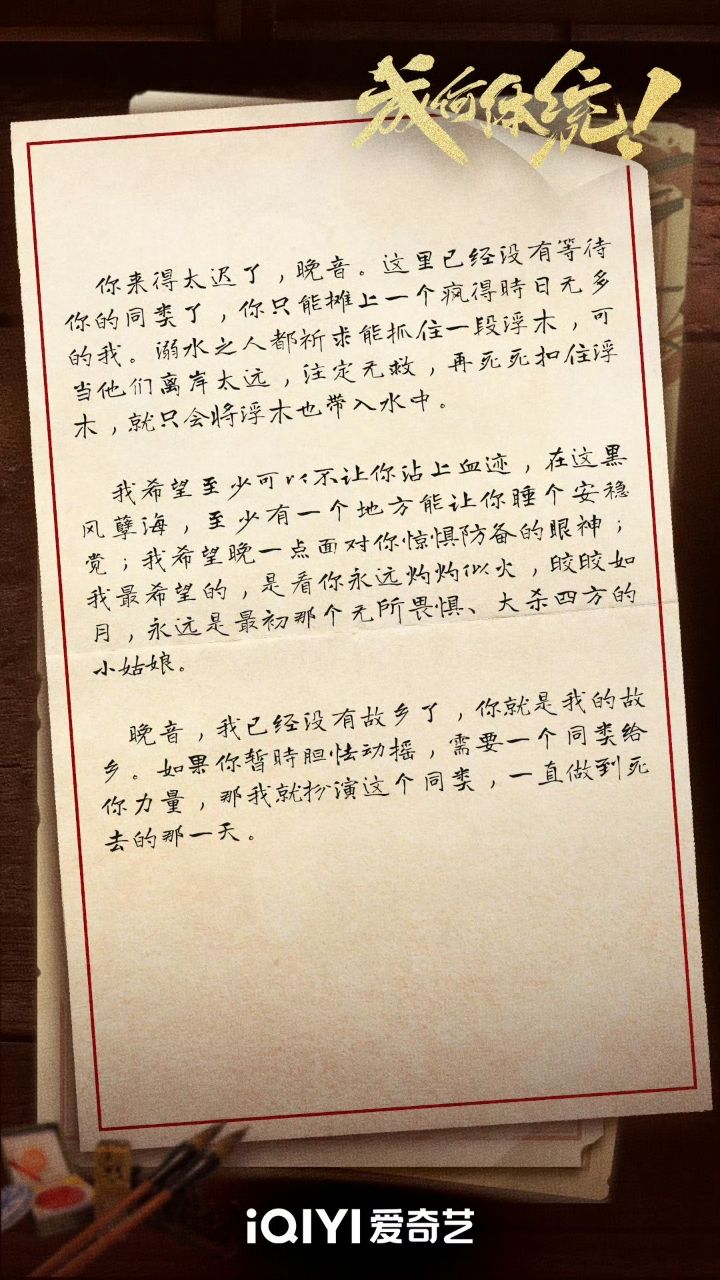 成何体统！
你来得太迟了，晚音。这里已经没有等待
你的同类了，你只能摊上一个疯得時日无多
的我。溺水之人都祈求能抓住一段浮木，可
当他们离岸太远，注定无救，再死死扣住浮
木，就只会将浮木也带入水中。
我希望至少可以不让你沾上血迹，在这黑
风孽海，至少有一个地方能让你睡个安稳
觉；我希望晚一点面对你惊惧防备的眼神；
我最希望的，是看你永远灼灼似火，皎皎如
月，永远是最初那个无所畏惧、大杀四方的
小姑娘。
晚音，我已经没有故乡了，你就是我的故
乡。如果你暂時胆怯动摇，需要一个同类给
你力量，那我就扮演这个同类，一直做到死
去的那一天。
iQIYI 爱奇艺